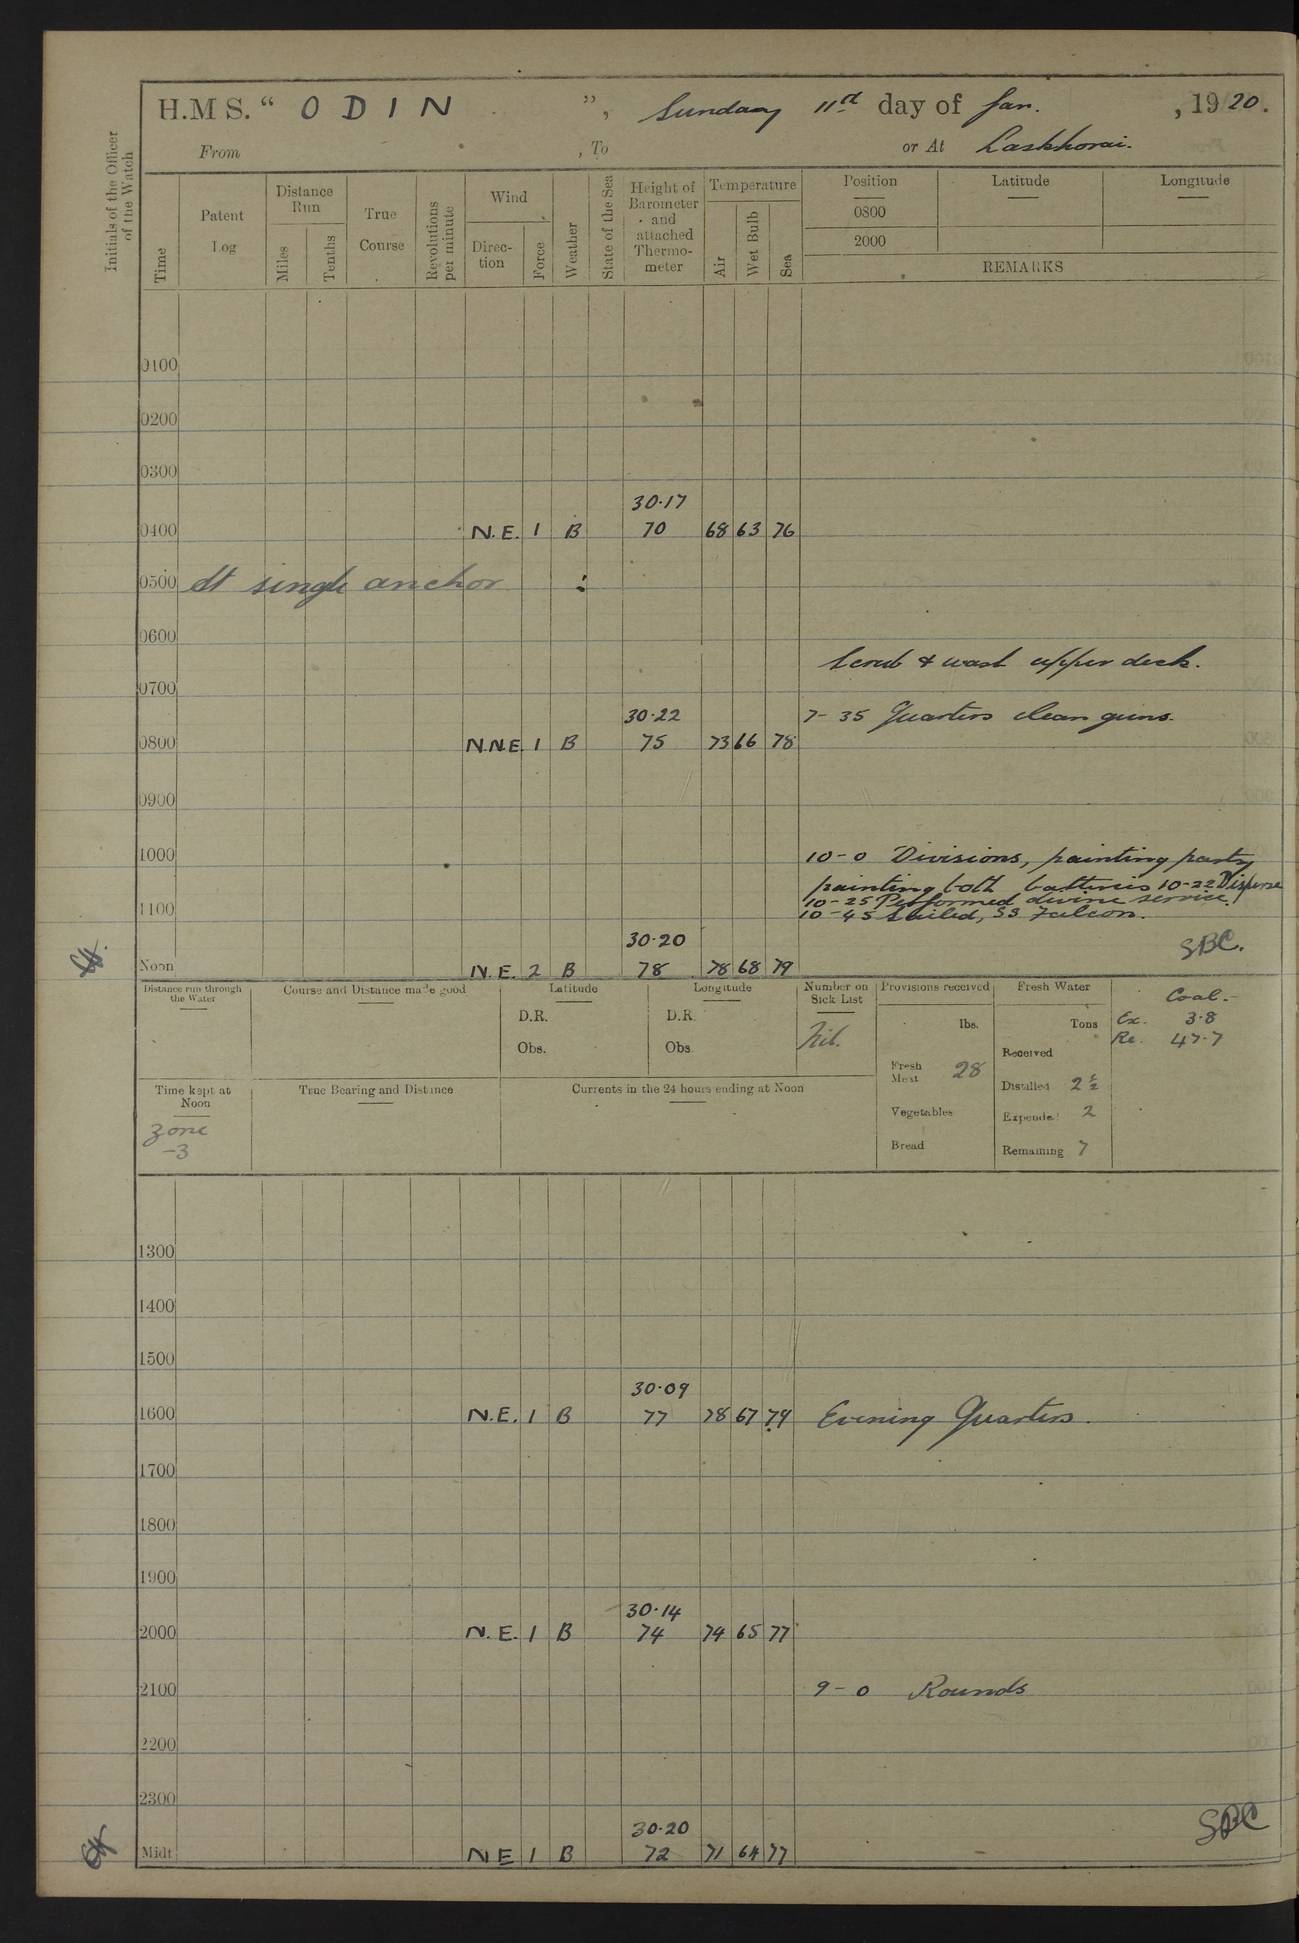 H.M S. “ O D I N ”, Sunday 11th day of Jan. , 1920.
From , To or At Laskhorai.
Initials of the Officer of the Watch
Time
Patent Log
Distance Run
Miles
Tenths
True Course
Revolutions per minute
Wind
Direction
Force
Weather
State of the Sea
Height of Barometer and attached Thermometer
Temperature
Air
Wet Bulb
Sea
Position
0800
2000
Latitude
Longitude
REMARKS
0100
0200
0300
30·17
0400 N.E. 1 B 70 68 63 76
0500 At single anchor
0600
Scrub & wash upper deck.
0700
30·22 7-35 Quarters clean guns.
0800 N.N.E. 1 B 75 73 66 78
0900
1000 10-0 Divisions, painting party
painting both batteries 10-22 Disperse
10-25 Performed divine service.
1100 10-45 Sailed, SS Falcon.
30·20 SBC.
Noon N.E. 2 B 78 78 68 79
Distance run through the Water
Course and Distance made good
Latitude
D.R.
Obs.
Longitude
D.R.
Obs.
Number on Sick List
Nil.
Provisions received
lbs.
Fresh Meat 28
Vegetables
Bread
Fresh Water
Tons
Received
Distilled 2½
Expended 2
Remaining 7
Coal.-
Ex. 3·8
Re. 47·7
Time kept at Noon
zone
-3
True Bearing and Distance
Currents in the 24 hours ending at Noon
1300
1400
1500
30·09
1600 N.E. 1 B 77 78 67 79 Evening Quarters.
1700
1800
1900
30·14
2000 N.E. 1 B 74 74 65 77
2100 9-0 Rounds
2200
2300
30·20 SBC
Midt N E 1 B 72 71 64 77